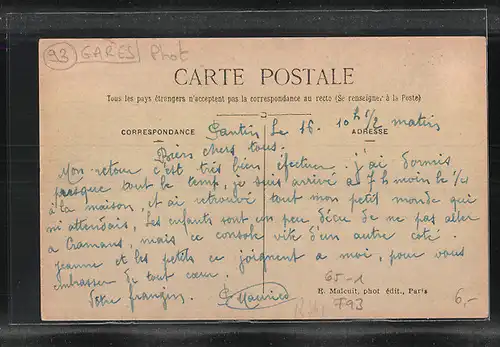 93 GARES Phot
CARTE POSTALE
Tous les pays étrangers n'acceptent pas la correspondance au recto (Se renseigner à la Poste)
CORRESPONDANCE
ADRESSE
Pantin, Le 16. 10h 1/2 matin
chers tous.
Mon retour c'est très bien éfectuer. j'ai dormis
presque tout le temp, je suis arrivé à 7h moin le 1/4
à la maison, et ai retrouvé tout mon petit monde qui
mi attendais, Les enfants sont un peu déçu de ne pas aller
à Cramans, mais ce console vite d'un autre coté.
Jeanne et les petits ce joignent a moi, pour vous
embrasser de tout cœur.
Votre frangin. Maurice
65-1
793
E. Malcuit, phot édit., Paris
6,-